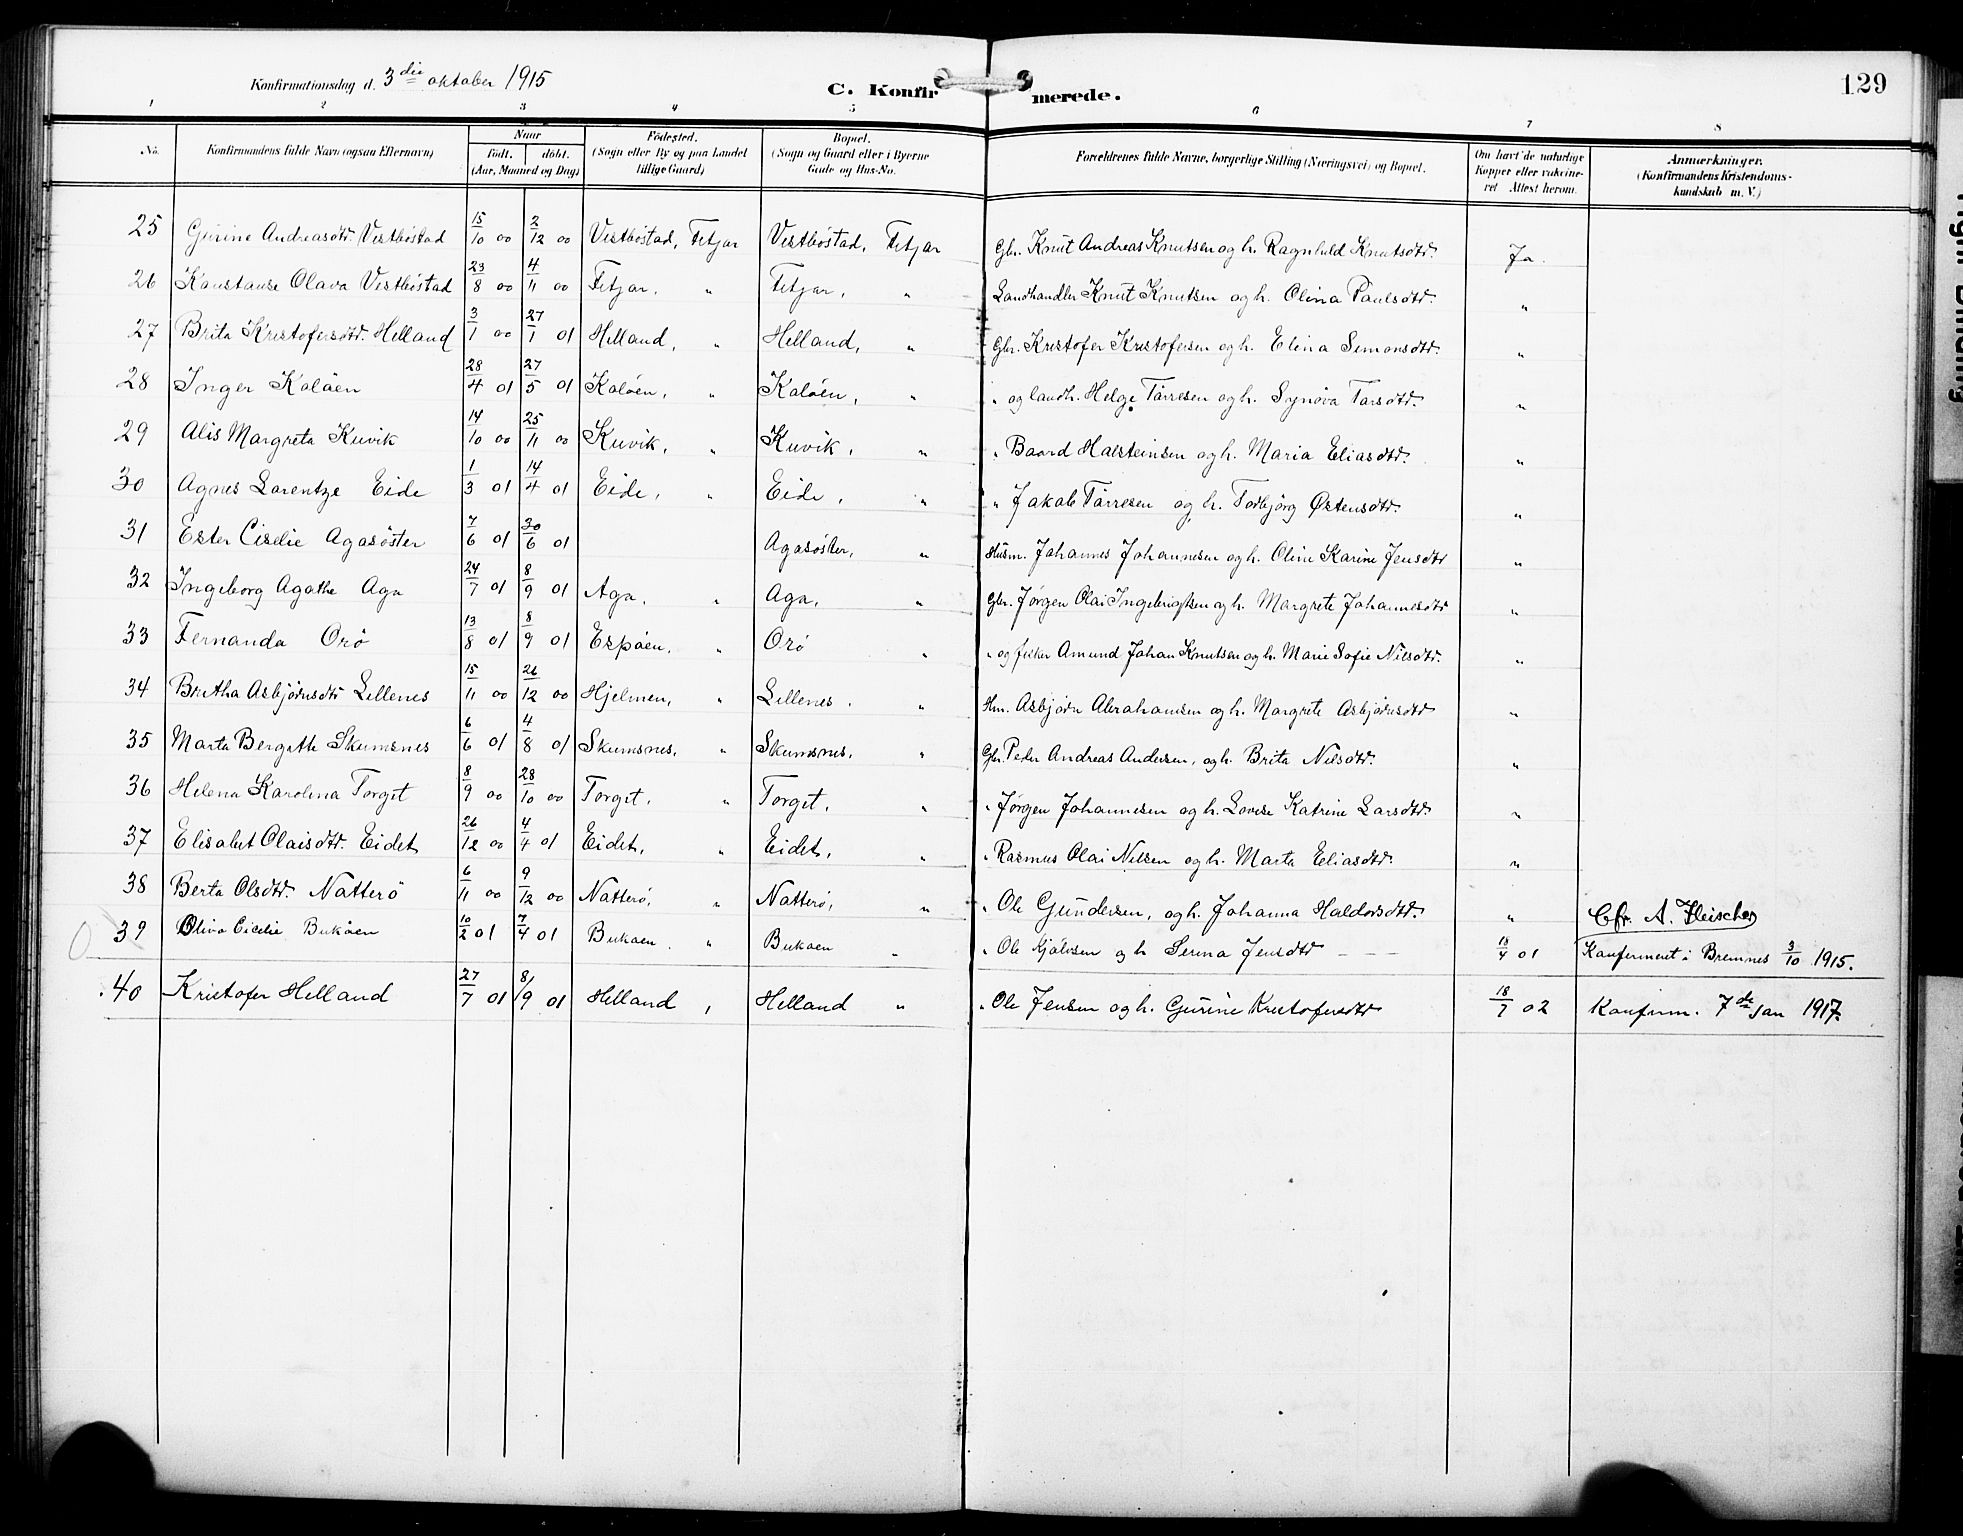 129
Konfirmationsdag d. 3die oktober 1915
C. Konfirmerede.
1 2 3 4 5 6 7 8
No. Konfirmandens fulde Navn (ogsaa Efternavn) Naar født. døbt. (Aar, Maaned og Dag) Fødested. (Sogn eller By og paa Landet tillige Gaard) Bopæl. (Sogn og Gaard eller i Byerne Gade og Hus-No. Forældrenes fulde Navne, borgerlige Stilling (Næringsvei) og Bopæl. Om havt de naturlige Kopper eller vakcineret. Attest herom. Anmærkninger. (Konfirmandens Kristendomskundskab m. V.)
25 Gurine Andreasdtr. Vestbøstad 15/10 00 2/12 00 Vestbøstad, Fitjar Vestbøstad, Fitjar Gbr. Knut Andreas Knutsen og h. Ragnhild Knutsdtr. Ja.
26 Konstanse Olava Vestbøstad 23/8 00 4/11 00 Fitjar, " Fitjar, " Landhandler Knut Knutsen og h. Olina Paulsdtr. "
27 Brita Kristofersdtr. Helland 3/1 00 27/1 01 Helland, " Helland, " Gbr. Kristofer Kristofersen og h. Elina Simonsdtr. "
28 Inger Koløen 28/4 01 27/5 01 Koløen, " Koløen, " " og landh. Helge Tørresen og h. Synøva Larsdtr. "
29 Alis Margreta Kuvik 14/10 00 25/11 00 Kuvik, " Kuvik, " " Baard Halsteinsen og h. Maria Eliasdtr. "
30 Agnes Lorentze Eide 1/3 01 14/4 01 Eide, " Eide, " " Jakob Tørresen og h. Torbjørg Østensdtr. "
31 Ester Cisilie Agasøster 7/6 01 30/6 01 Agasøster, " Husm. Johannes Johannesen og h. Oline Karine Jensdtr "
32 Ingeborg Agathe Aga 24/7 01 8/9 01 Aga, " Aga, " Gbr. Jørgen Olai Ingebrigtsen og h. Margrete Johannesdtr "
33 Fernanda Orø 13/8 01 8/9 01 Espøen, " Orø " " og fisker Amund Johan Knutsen og h. Marie Sofie Nilsdtr. "
34 Britha Asbjørnsdtr Lillenes 15/11 00 26/12 00 Hjelmen, " Lillenes. " Hm. Asbjørn Abrahamsen og h. Margrete Asbjørnsdtr "
35 Marta Bergith Skumsnes 6/6 01 4/8 01 Skumsnes, " Skumsnes, " Gbr. Peder Andreas Andersen, og h. Brita Nilsdtr. "
36 Helena Karolina Torget 8/9 00 28/10 00 Torget, " Torget, " " Jørgen Johannesen og h. Lovise Katrine Larsdtr. "
37 Elisabet Olaisdtr. Eidet 26/12 00 4/4 01 Eidet, " Eidet, " " Rasmus Olai Nilsen og h. Marta Eliasdtr. "
38 Berta Olsdtr. Natterø 6/11 00 9/12 00 Natterø, " Natterø, " " Ole Gundersen, og h. Johanna Haldorsdtr. " Chr. A. Fleischer
39 Oliva Cicilie Bukøen 10/2 01 7/4 01 Bukøen. " Bukøen " " Ole Kjølvsen og h Serina Jensdtr 18/4 01 Konfirmeret i Bremnes 3/10 1915.
40 Kristofer Helland 27/7 01 8/9 01 Helland , Helland " " Ole Jensen og h. Gurine Kristofersdtr 18/7 02 Konfirm. 7de jan 1917.